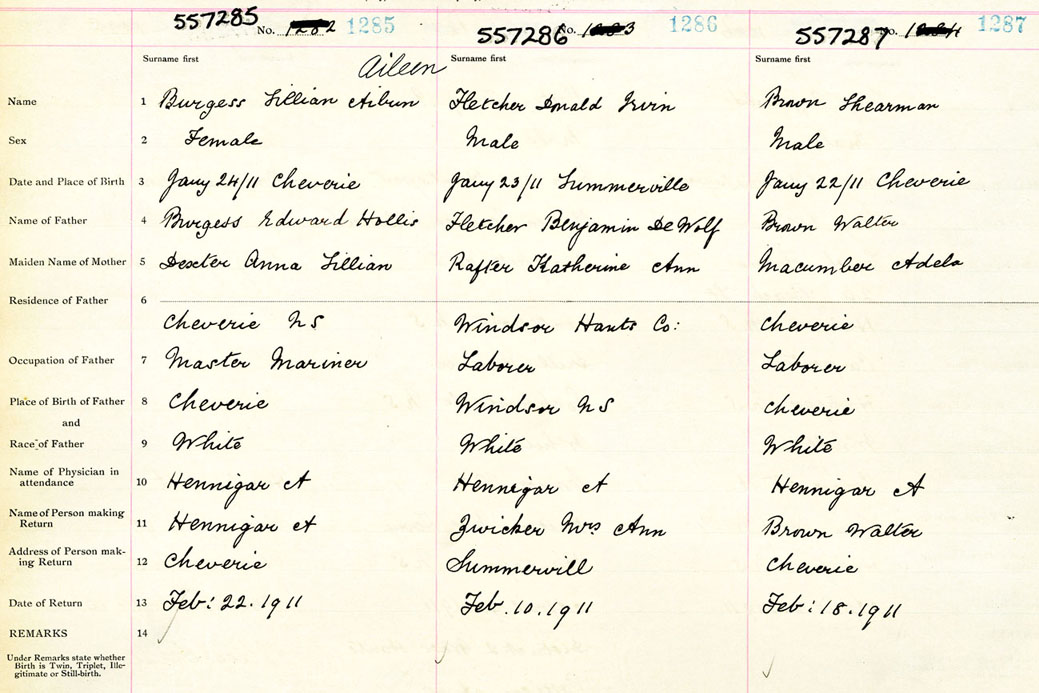 557285 No. 1285
557286 No. 1286
557287 No. 1287
Surname first Aileen Surname first Surname first
Name 1 Burgess Lillian Fletcher Donald Irvin Brown Shearman
Sex 2 Female Male Male
Date and Place of Birth 3 Jany 24/11 Cheverie Jany 23/11 Summerville Jany 22/11 Cheverie
Name of Father 4 Burgess Edward Hollis Fletcher Benjamin DeWolf Brown Walter
Maiden Name of Mother 5 Dexter Anna Lillian Rafter Katherine Ann Macumber Adela
Residence of Father 6
Cheverie NS Windsor Hants Co: Cheverie
Occupation of Father 7 Master Mariner Laborer Laborer
Place of Birth of Father 8 Cheverie Windsor NS Cheverie
and
Race of Father 9 White White White
Name of Physician in
attendance 10 Hennigar A Hennigar A Hennigar A
Name of Person making
Return 11 Hennigar A Zwicker Mrs Ann Brown Walter
Address of Person mak-
ing Return 12 Cheverie Summervill Cheverie
Date of Return 13 Feb: 22. 1911 Feb. 10. 1911 Feb: 18. 1911
REMARKS 14
Under Remarks state whether
Birth is Twin, Triplet, Ille-
gitimate or Still-birth.